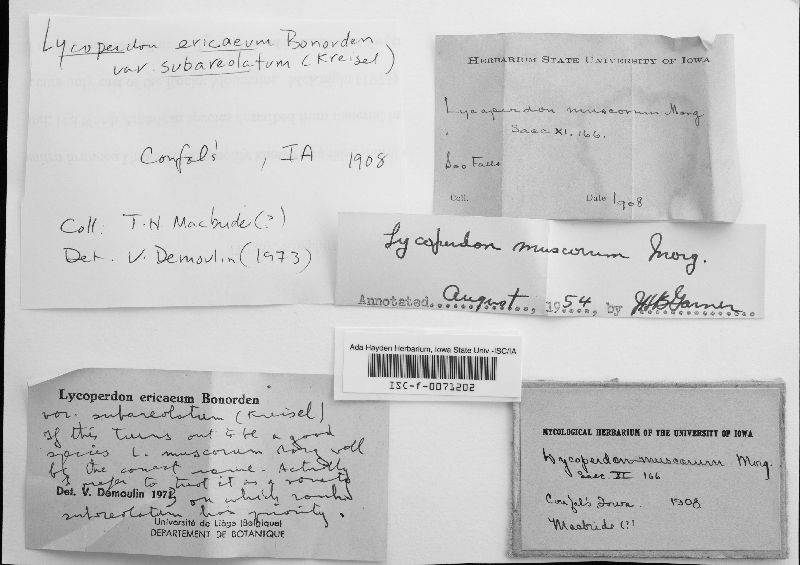 Lycoperdon ericaeum Bonorden
var. subareolatum (Kreisel)
, IA 1908
Coll: T.H Macbride(?)
Det. V. Demoulin (1973)
HERBARIUM STATE UNIVERSITY OF IOWA
Lycoperdon muscorum Morg.
Sacc XI. 166.
Falls
Coll.
Date 1908
Lycoperdon muscorum Morg.
Annotated August, 1954, by
Ada Hayden Herbarium, Iowa State Univ -ISC/IA
ISC-f-0071202
Lycoperdon ericaeum Bonorden
var. subareolatum (Kreisel)
If this turns out to be a good
species L. muscorum Morg will
be the correct name. Actually
I prefer to treat it as a variety
Det. V. Demoulin 1972 on which rank
subareolatum has priority.
Université de Liège (Belgique)
DEPARTEMENT DE BOTANIQUE
MYCOLOGICAL HERBARIUM OF THE UNIVERSITY OF IOWA
Lycoperdon muscorum Morg.
Sacc. XI 166
Iowa. 1908
Macbride (?)